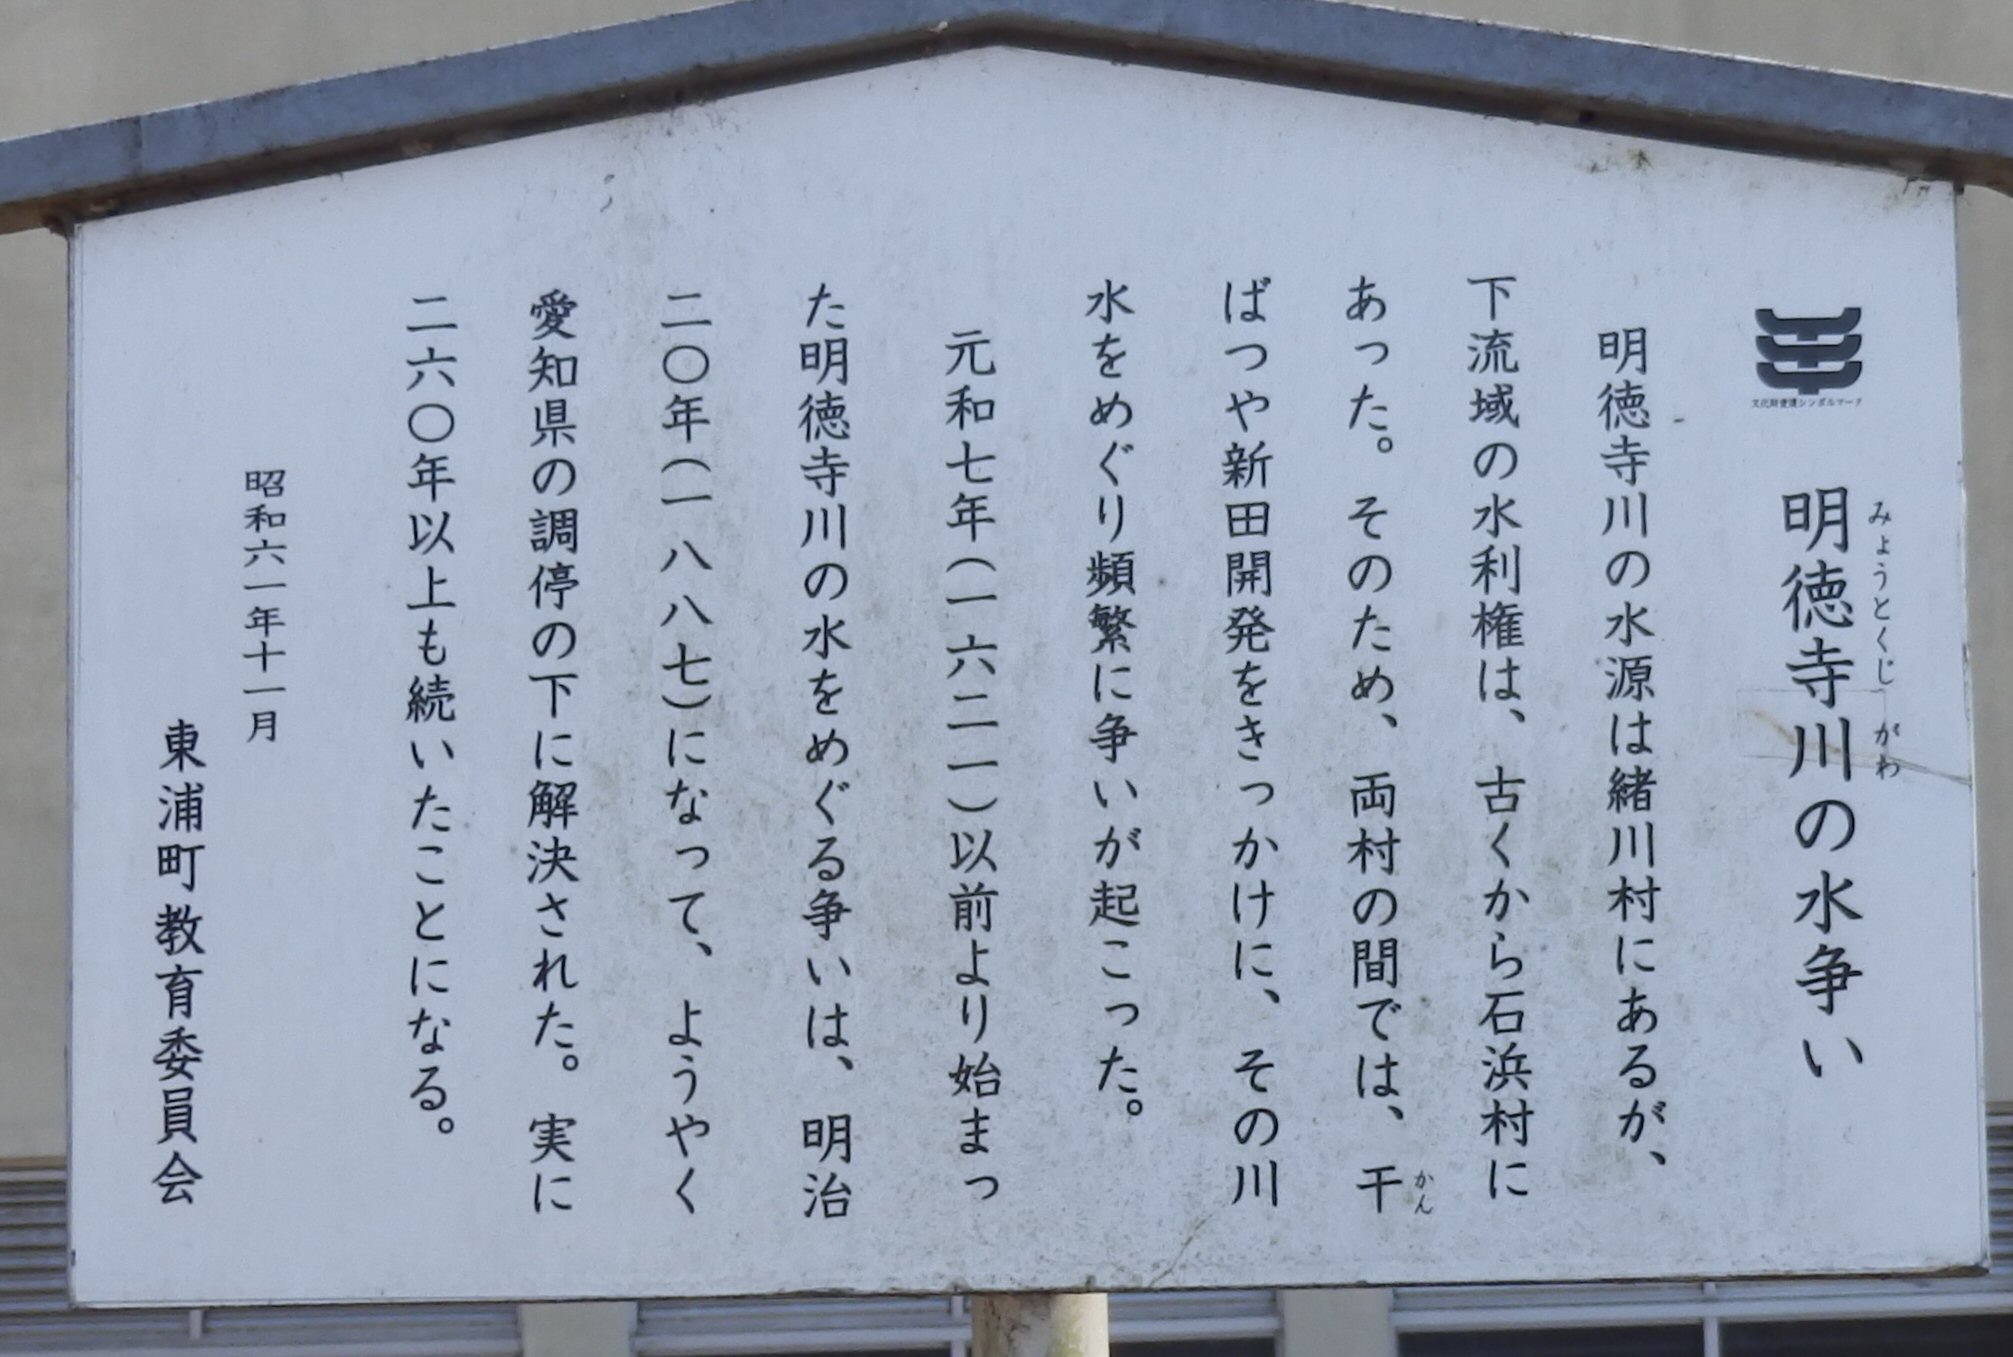 文化財愛護シンボルマーク
明徳寺川の水争い
みょうとくじ がわ
明徳寺川の水源は緒川村にあるが、
下流域の水利権は、古くから石浜村に
あった。そのため、両村の間では、干
かん
ばつや新田開発をきっかけに、その川
水をめぐり頻繁に争いが起こった。
元和七年(一六二一)以前より始まっ
た明徳寺川の水をめぐる争いは、明治
二〇年(一八八七)になって、ようやく
愛知県の調停の下に解決された。実に
二六〇年以上も続いたことになる。
昭和六一年十一月
東浦町教育委員会